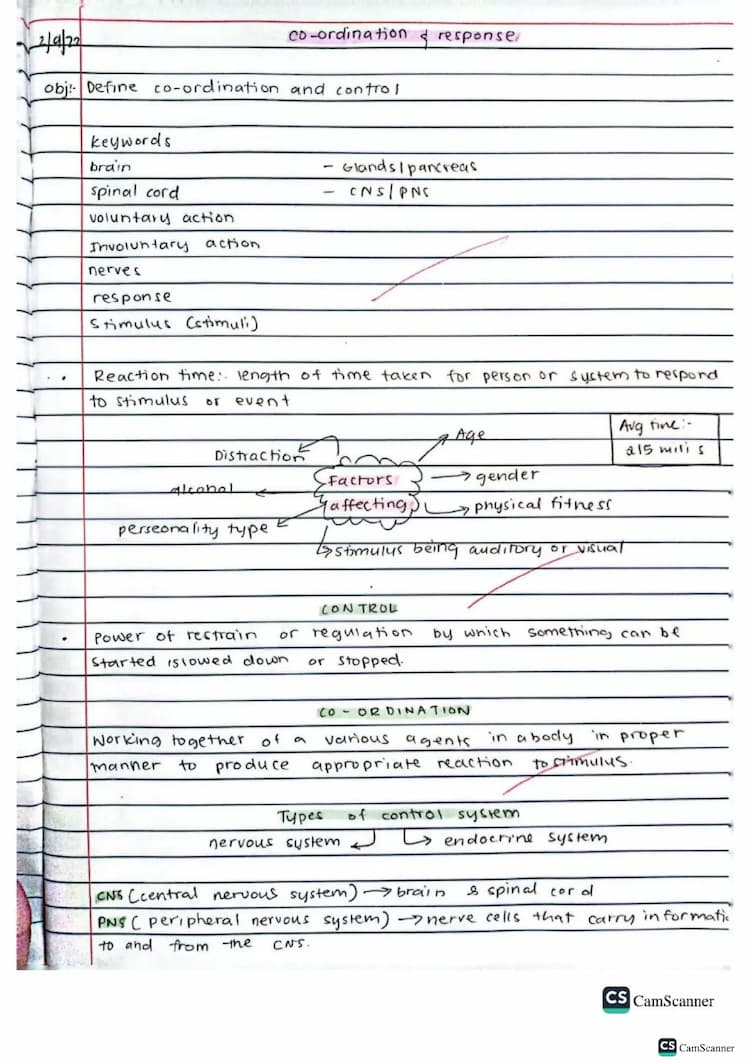 2/9/22
co-ordination & response
obj:- Define co-ordination and control
keywords
brain - Glands/pancreas
spinal cord - CNS/PNS
voluntary action
Involuntary action
nerves
response
Stimulus (stimuli)
. . Reaction time:. length of time taken for person or system to respond
to stimulus or event
Avg time:-
215 mili s
Age
Distraction
Factors
affecting
gender
alcohol
physical fitness
perseonality type
stimulus being auditory or visual
CONTROL
. Power of restrain or regulation by which something can be
started /slowed down or stopped.
CO-ORDINATION
Working together of a various agents in a body in proper
manner to produce appropriate reaction to stimulus.
Types of control system
nervous system endocrine system
CNS (central nervous system) → brain & spinal cord
PNS (peripheral nervous system) → nerve cells that carry informatic
to and from the CNS.
CS CamScanner
CS CamScanner